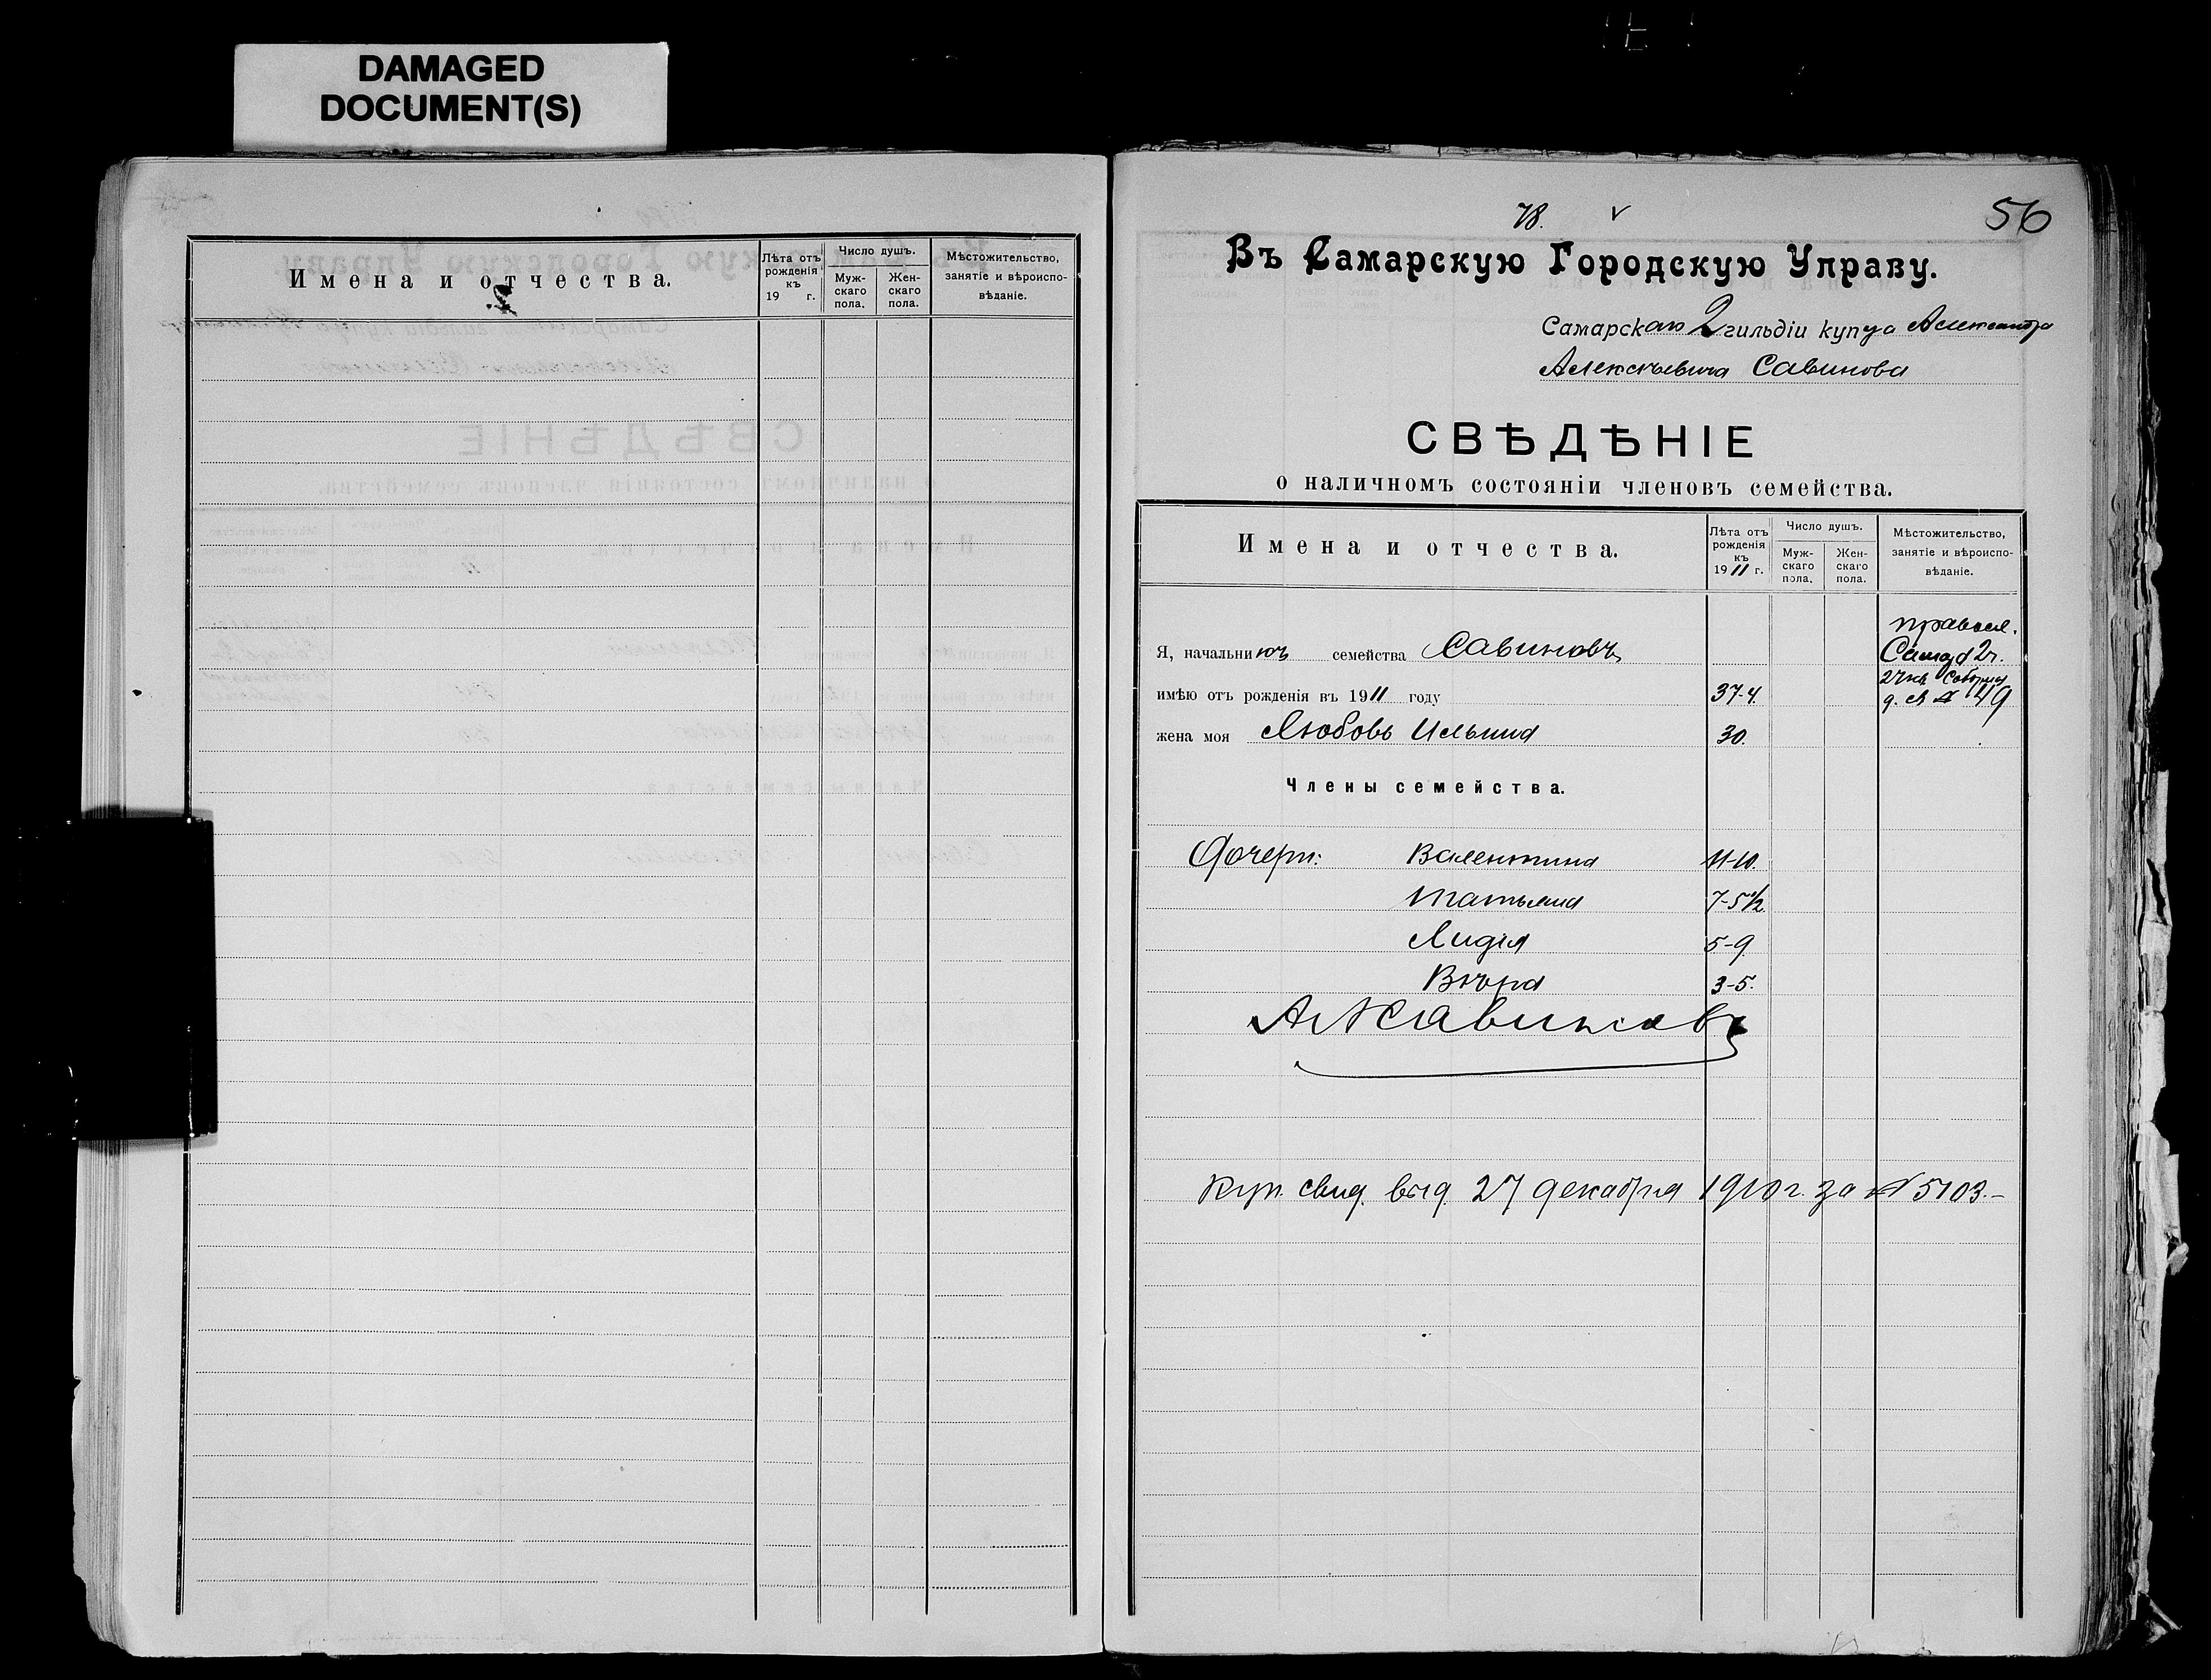 DAMAGED
DOCUMENT(S)
Имена и отчества.
Лѣта отъ рожденія къ 19 г.
Число душъ.
Муж-скаго пола.
Жен-скаго пола.
Мѣстожительство, занятіе и вѣроиспо-вѣданіе.
78.
56
Въ Самарскую Городскую Управу.
Самарскаго 2 гильдіи купца Александра
Алексѣевича Савинова
СВѢДѢНІЕ
о наличномъ состояніи членовъ семейства.
Имена и отчества.
Лѣта отъ рожденія къ 1911 г.
Число душъ.
Муж-скаго пола.
Жен-скаго пола.
Мѣстожительство, занятіе и вѣроиспо-вѣданіе.
правосл.
Я, начальникъ семейства Савиновъ
2 ч.
имѣю отъ рожденія въ 1911 году 37-4.
д. № 49
жена моя Любовь Ильина 30.
Члены семейства.
Дочери: Валентина 11-10.
Татьяна 7-5½
Лидія 5-9
Вѣра 3-5.
Савиновъ
Куп. свид. выд. 27 декабря 1910 г. за № 5103.-